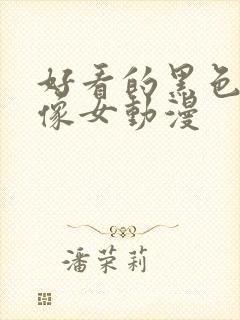 好看的黑色
像女動漫
潘荣莉